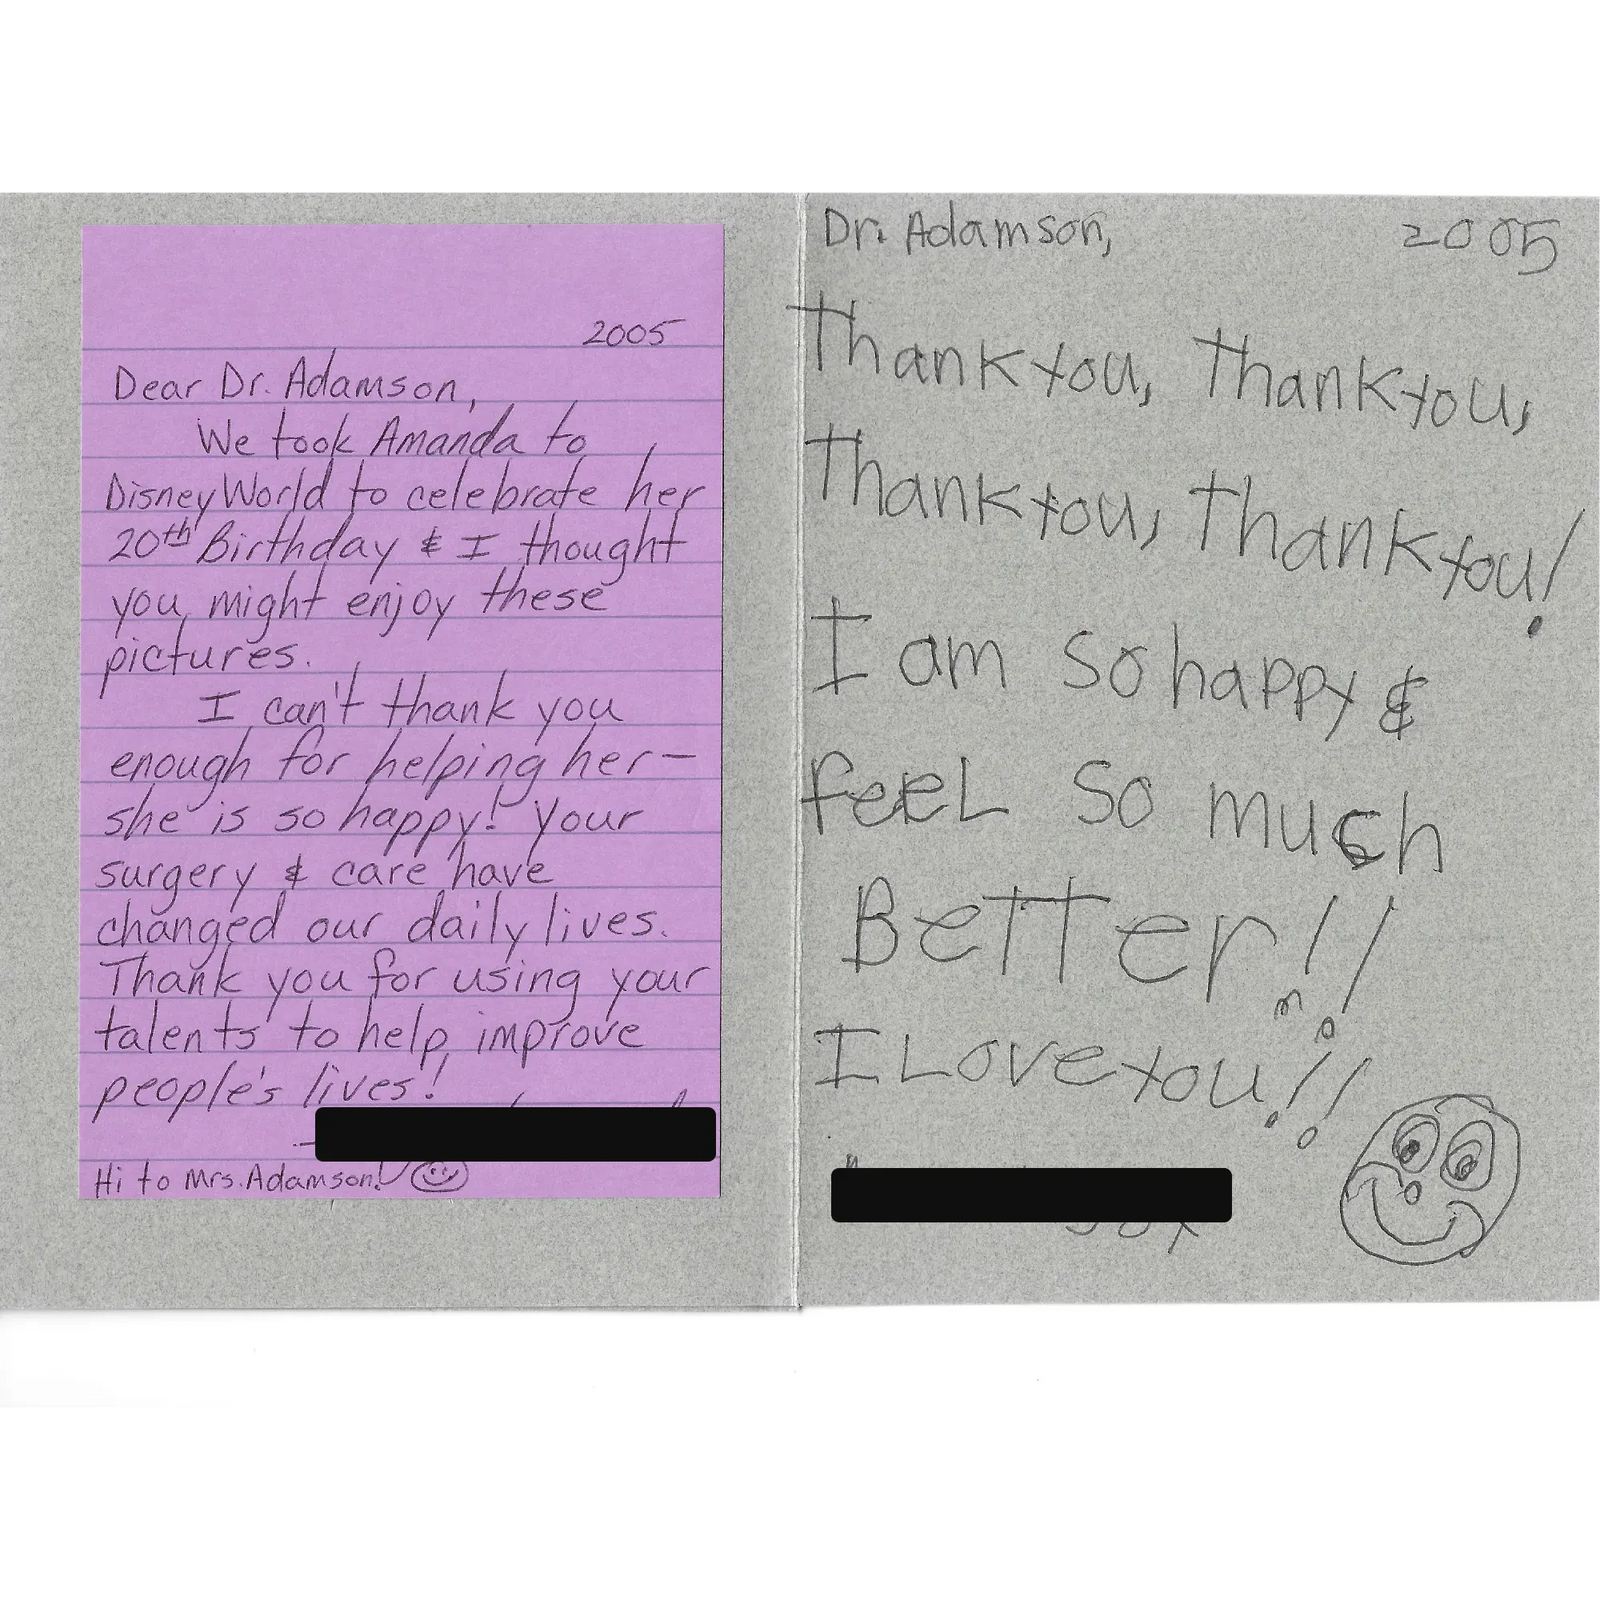 2005
Dear Dr. Adamson,
We took Amanda to
Disney World to celebrate her
20th Birthday & I thought
you might enjoy these
pictures.
I can't thank you
enough for helping her—
she is so happy! Your
surgery & care have
changed our daily lives.
Thank you for using your
talents to help improve
people's lives!
Hi to Mrs. Adamson!
Dr. Adamson, 2005
Thank you, Thank you,
Thank you, Thank you!
I am so happy &
feel so much
Better!!
I Love you!!